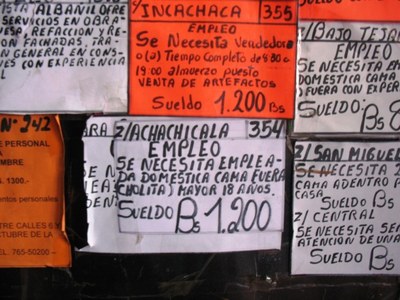 ISTA ALBAÑILERE
SERVICIOS EN OBRA
ESA, REFACCION Y RE
ON FACHADAS, TRA
N GENERAL EN CONS
NES CON EXPERIENCIA
AL
Z/INCACHACA 355
EMPLEO
SE NECESITA VENDEDORA
O (A) TIEMPO COMPLETO DE 9:30 A
19:00 A/MUERZO PUESTO
VENTA DE ARTEFACTOS
SUELDO 1.200 BS
BAJO TEJAR
EMPLEO
SE NECESITA EM
DOMÉSTICA CAMA
FUERA CON EXPER
SUELDO: BS
N° 242
E PERSONAL
MBRE
S. 1300.-
entos personales
NTRE CALLES 6
OCTUBRE DE LA
EL. 765-50200.-
ARA
SE NE
DOMÉ
(CHOL
DENT
Z/ACHACHICALA 354
EMPLEO
SE NECESITA EMPLEA-
DA DOMÉSTICA CAMA FUERA
CHOLITA) MAYOR 18 AÑOS.
SUELDO BS 1.200
Z/SAN MIGUEL
SE NECESITA 2
CAMA ADENTRO P
CASA
SUELDO BS
Z/CENTRAL
SE NECESITA SEÑ
ATENCION DE UNA
SUELDO BS